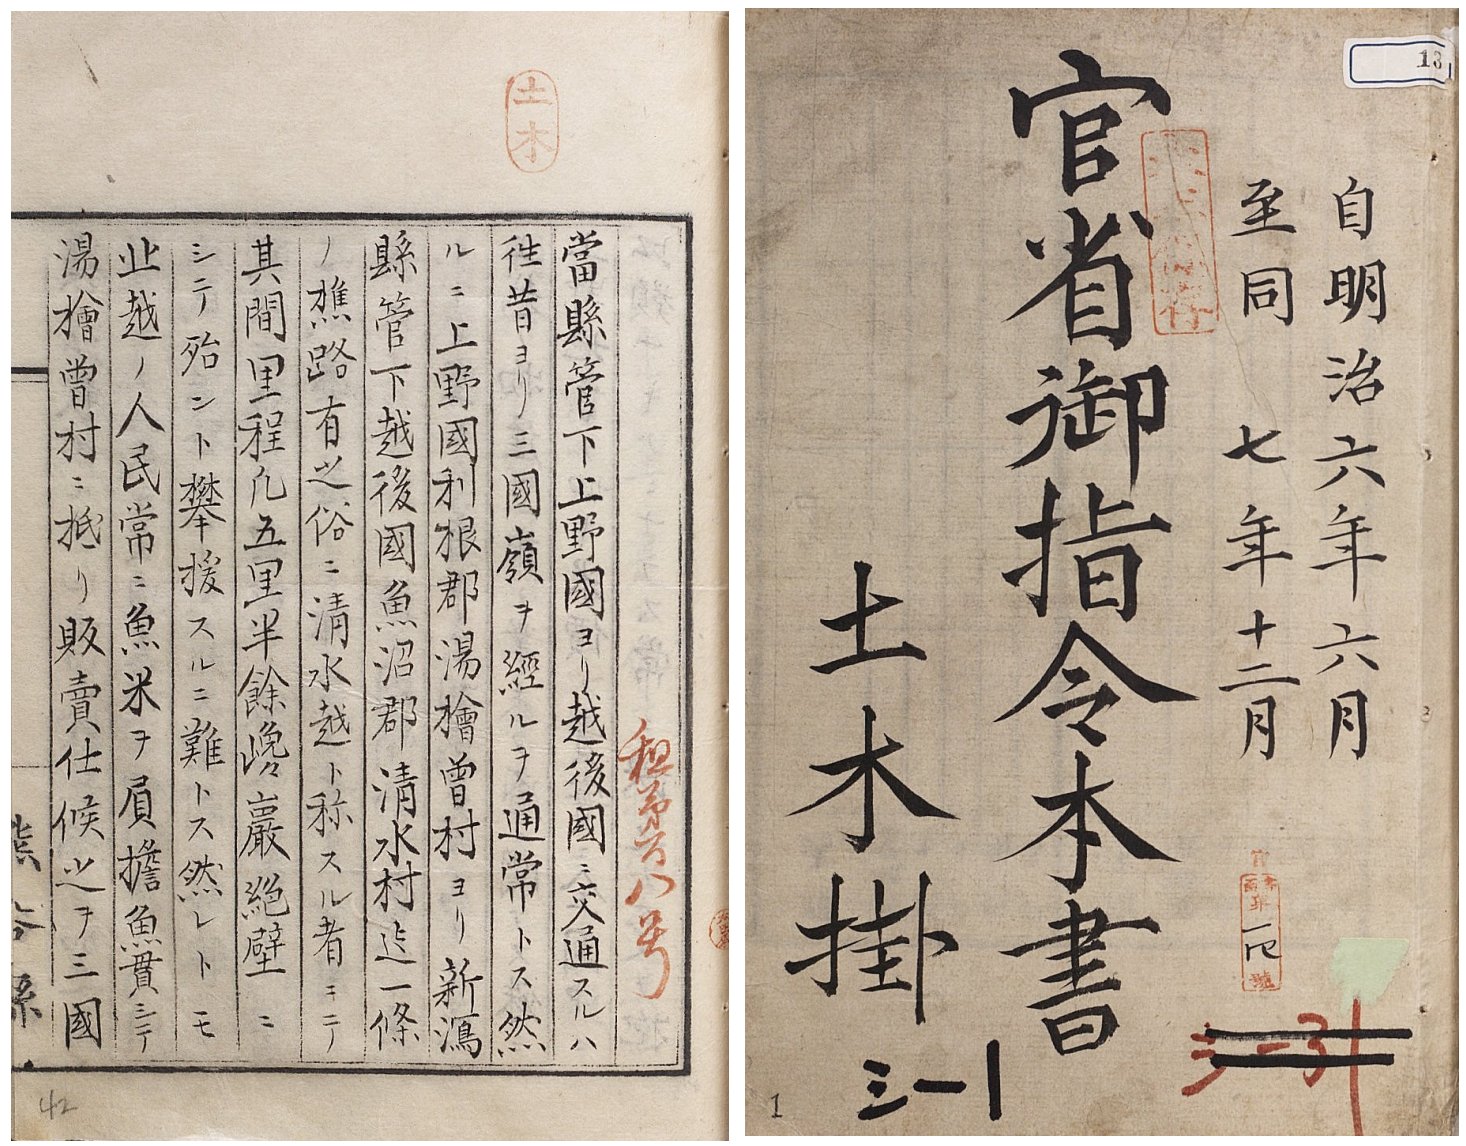 自明治六年六月
至同七年十二月
官省御指令本書
土木掛
三一1
13
1
土木
租第百八号
當縣管下上野國ヨリ越後國ニ交通スルハ
徃昔ヨリ三國嶺ヲ經ルヲ通常トス然
ルニ上野國利根郡湯檜曽村ヨリ新潟
縣管下越後國魚沼郡清水村迄一條
ノ樵路有之俗ニ清水越ト称スル者ニテ
其間里程凡五里半餘巉巖絶壁ニ
シテ殆ント攀援スルニ難トス然レトモ
止越ノ人民常ニ魚米ヲ肩擔魚貫シテ
湯檜曽村ニ抵リ販賣仕候之ヲ三國
熊谷縣
42